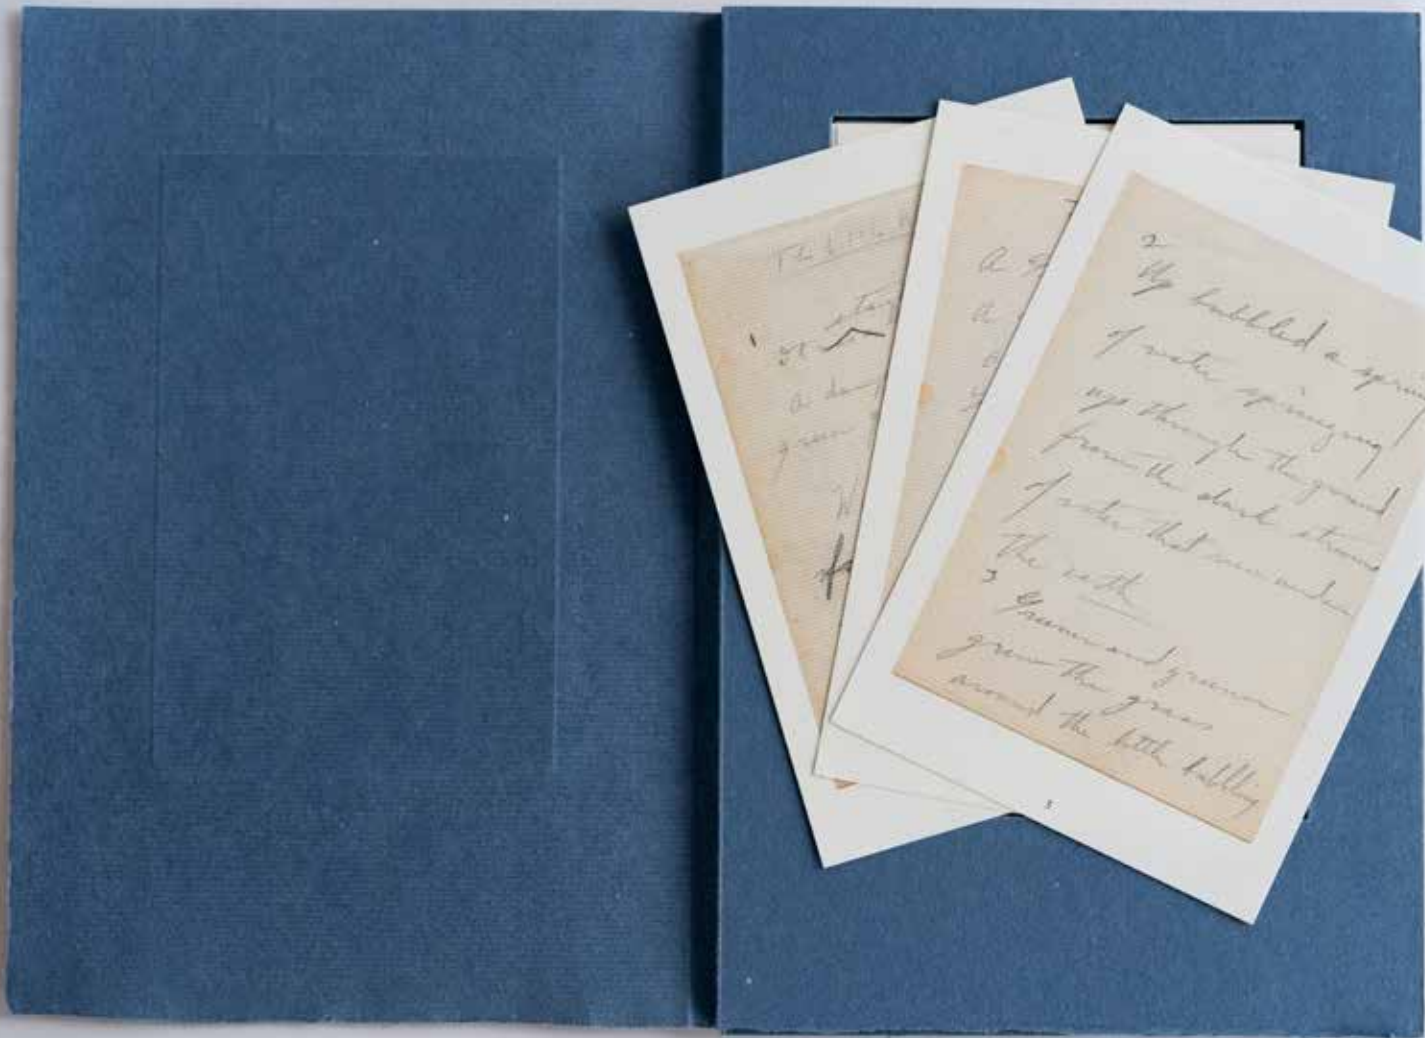 The Little
1
or
a
green
W
a
a
2
Up bubbled a spring
of water springing
up through the ground
from the dark streams
of water that run under
the earth
3 Greener and greener
grew the grass
around the little bubbling
3